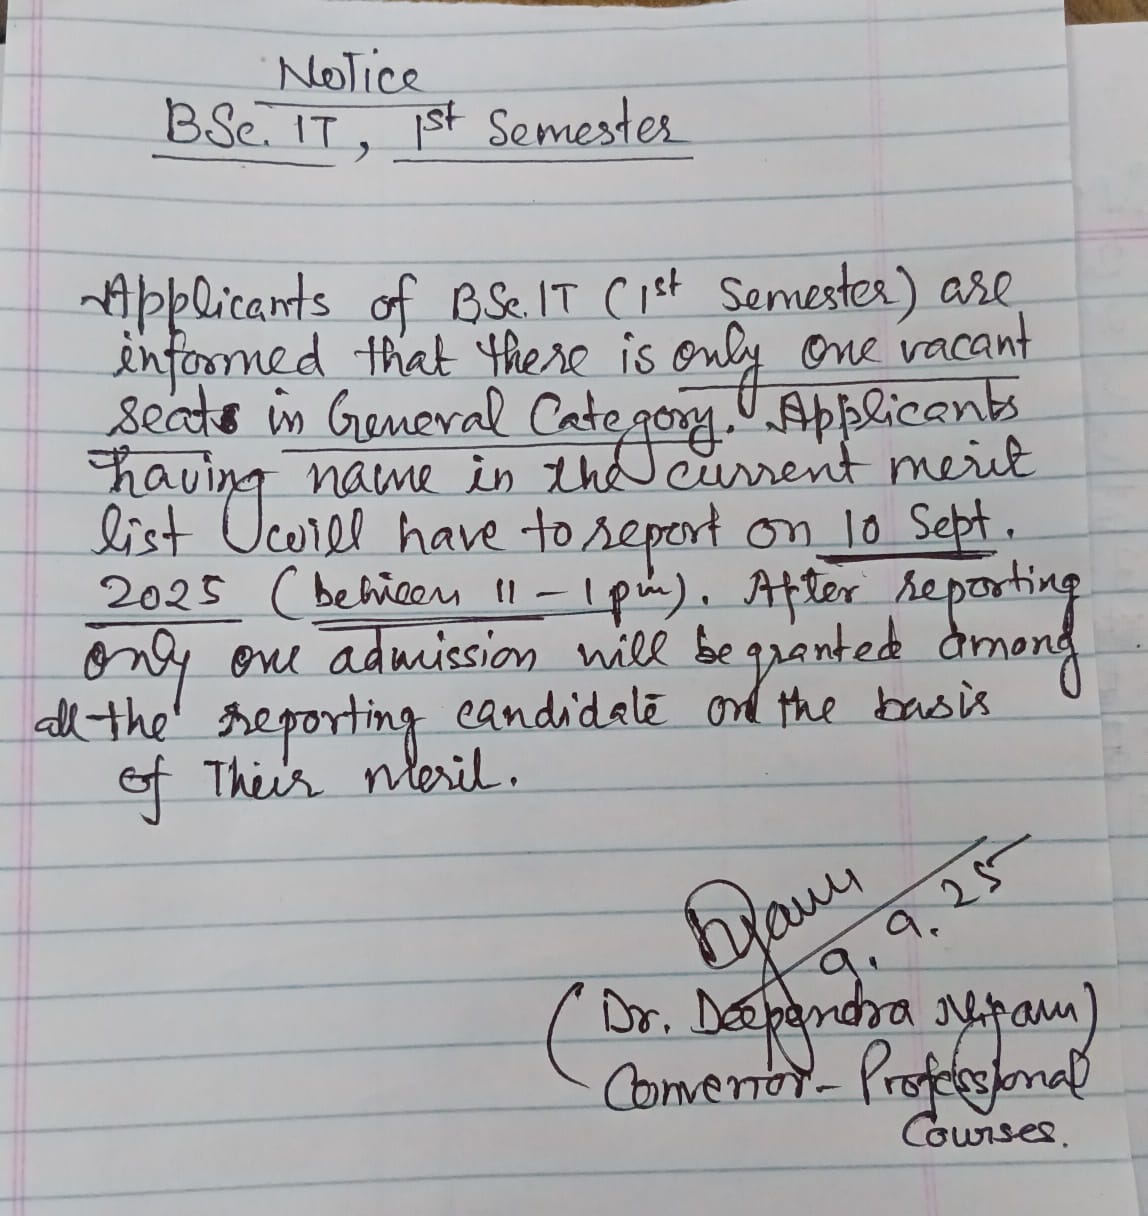 Notice
BSc. IT, 1st Semester
Applicants of BSc. IT (1st Semester) are
informed that there is only one vacant
seats in General Category. Applicants
having name in the current merit
list will have to report on 10 Sept.
2025 (between 11 - 1 pm). After reporting
only one admission will be granted among
all the reporting candidate on the basis
of Their Merit.
9.9.25
(Dr. Deependra Nigam)
Convenor - Professional
Courses.